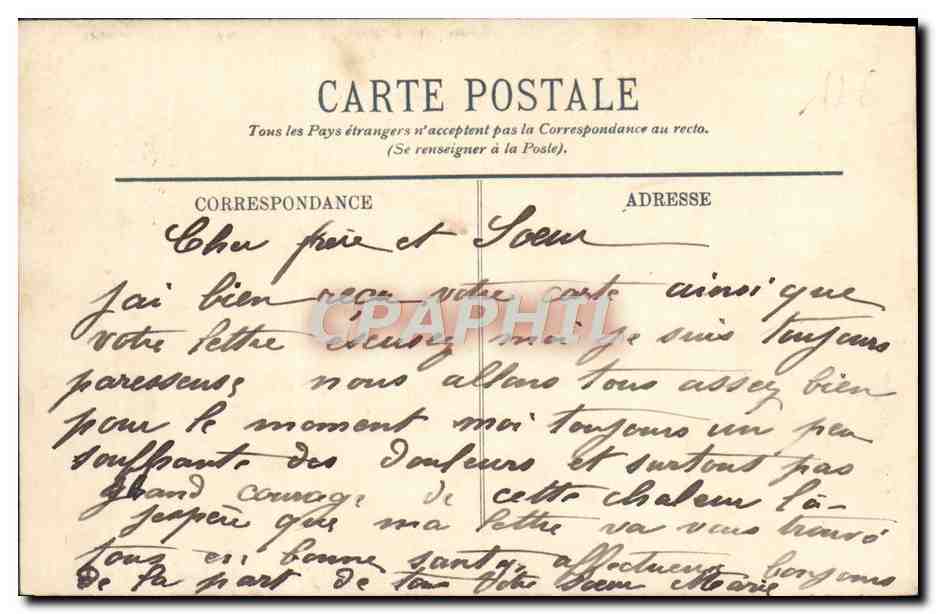 CARTE POSTALE
Tous les Pays étrangers n'acceptent pas la Correspondance au recto.
(Se renseigner à la Poste).
CORRESPONDANCE
ADRESSE
Cher frère et Sœur
J'ai bien reçu votre carte ainsi que
CPAPHIL
votre lettre escusez moi je suis toujours
paresseuse nous allons tous assez bien
pour le moment moi toujours un peu
souffrante des douleurs et surtout pas
grand courage de cette chaleur là
j'espère que ma lettre va vous trouvé
tous en bonne santé, affectueux bonjours
de la part de tous Votre Sœur Marie